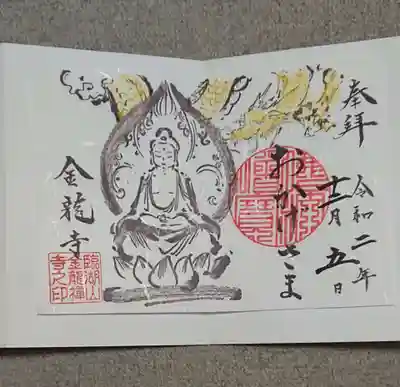 奉拝
令和二年
十二月五日
おかげさま
金龍寺
臨湖山
金龍禅
寺之印